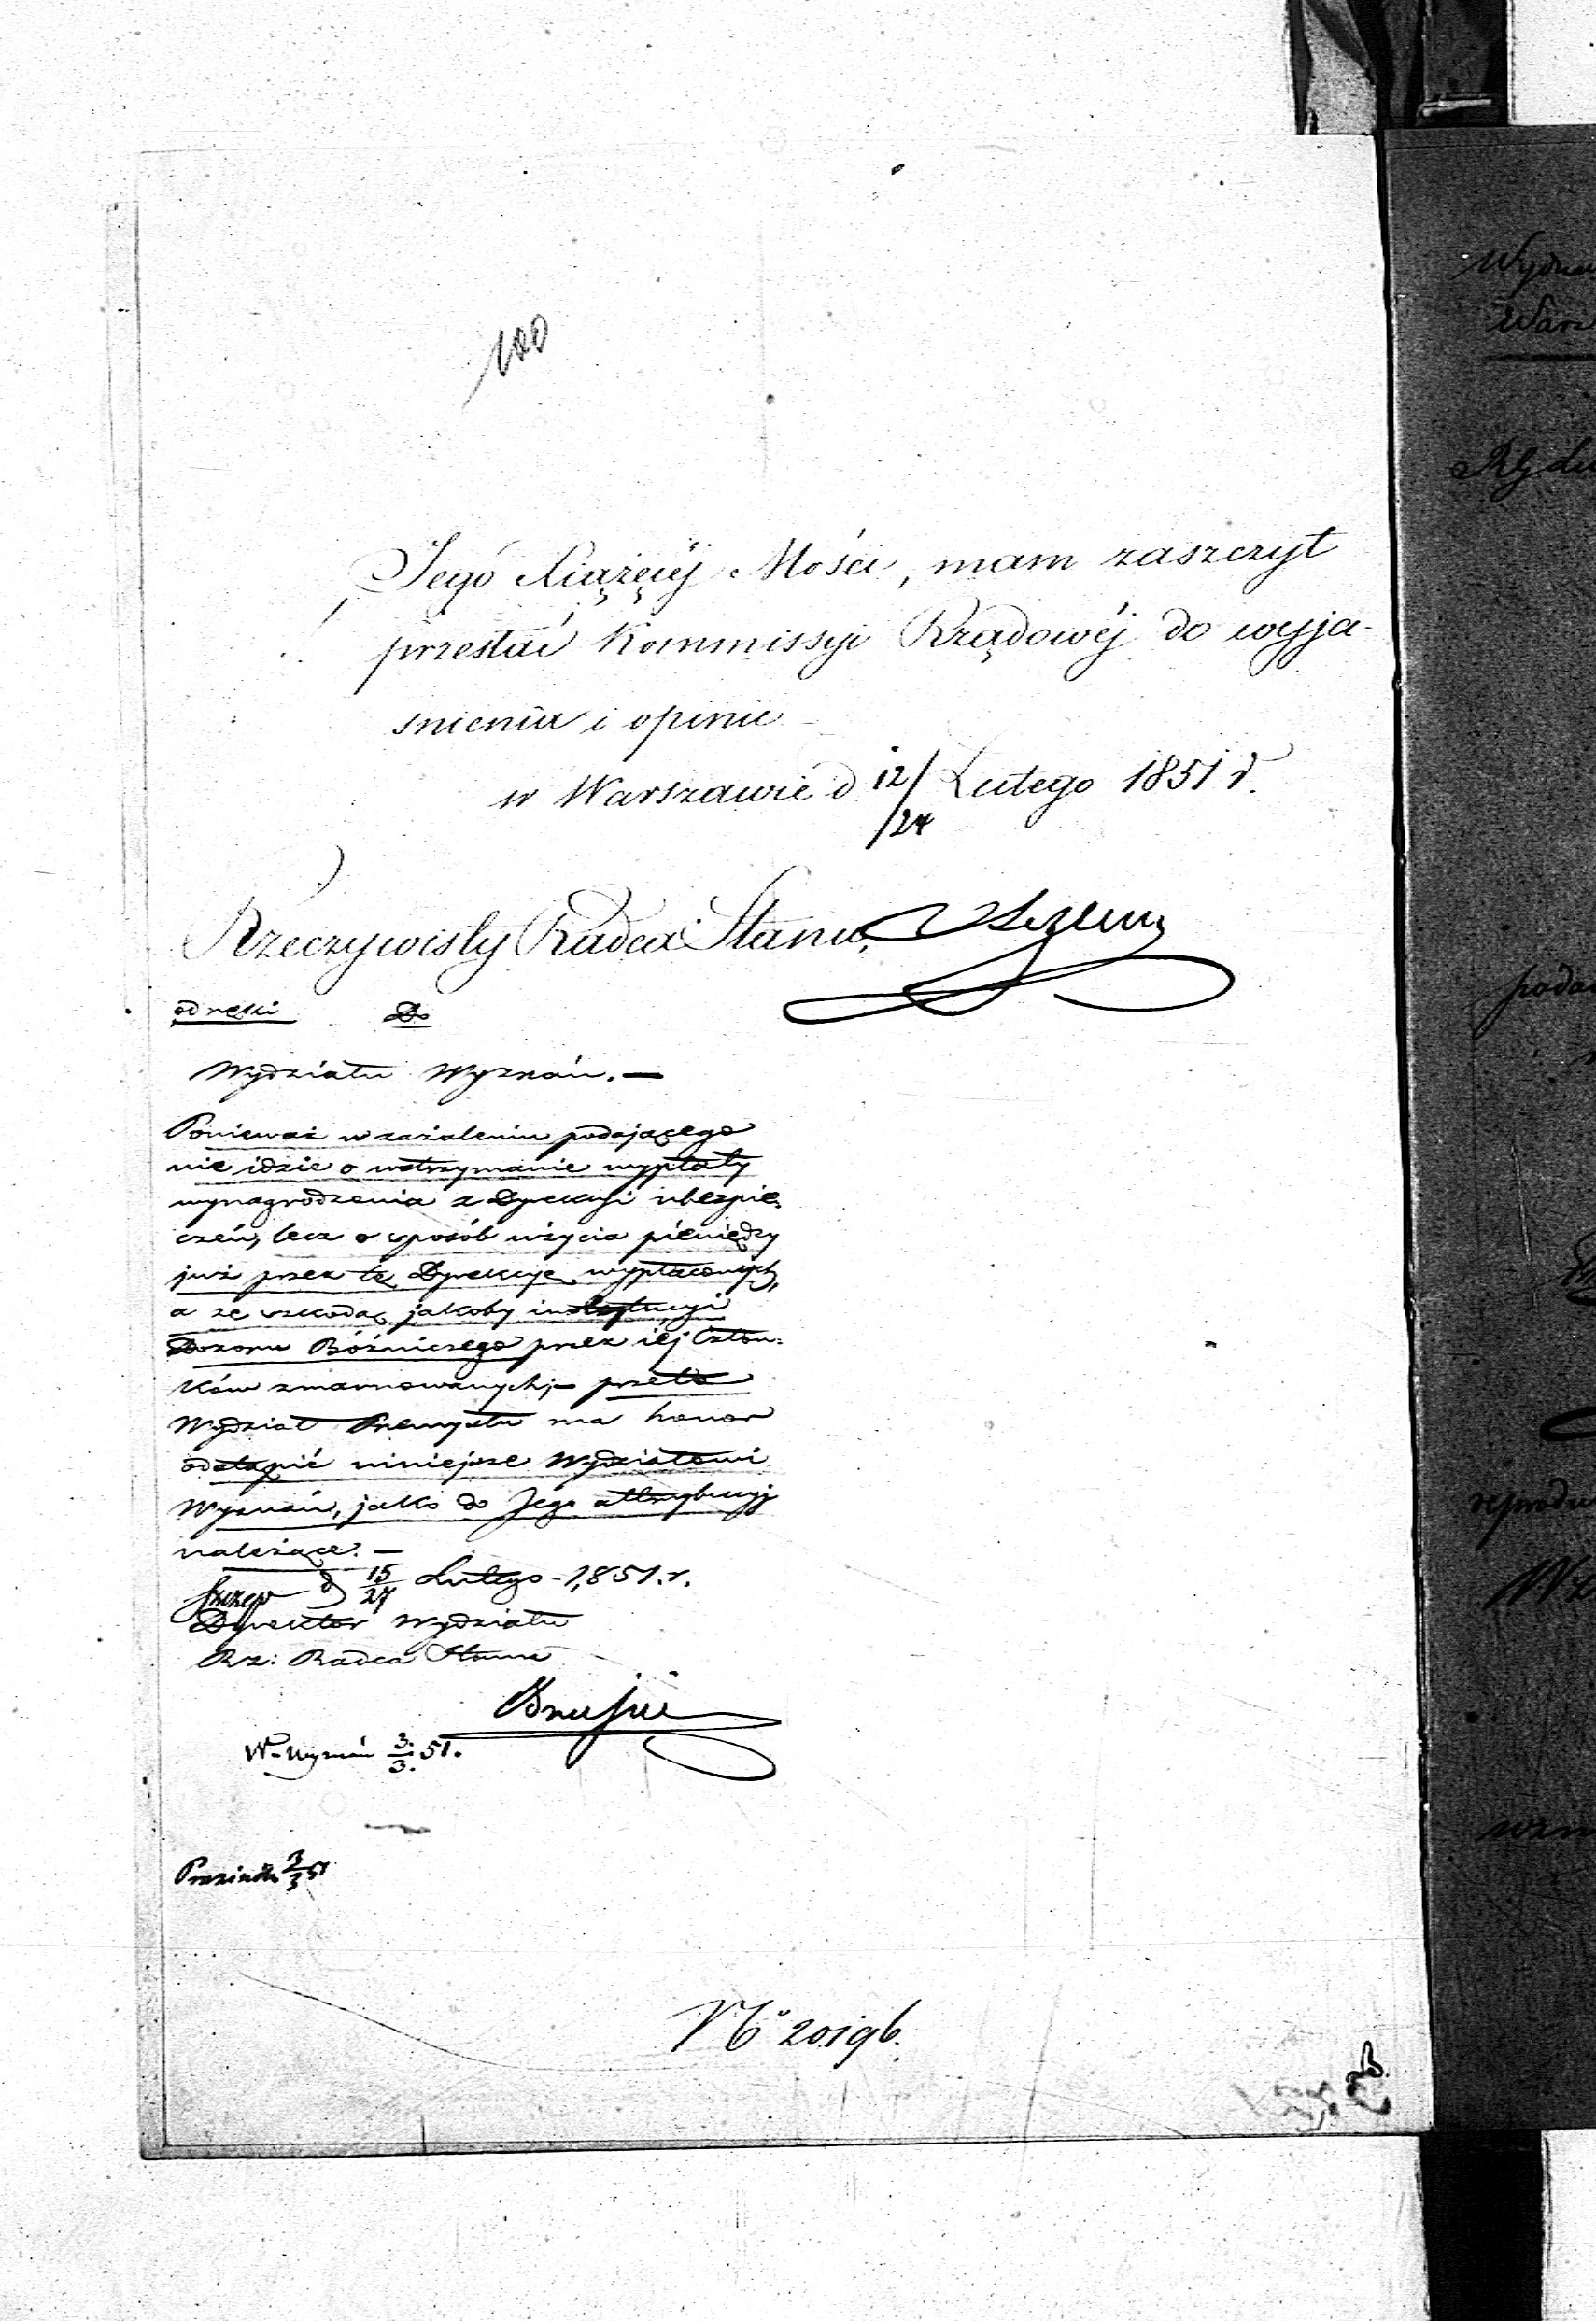 100
Jego Xiążęcéj Mości, mam zaszczyt
przesłać Kommissyi Rządowéj do wyja-
śnienia i opinii
w Warszawie d 12/24 Lutego 1851 r.
Rzeczywisty Radca Stanu,
od ręki Do
Wydziału Wyznań. —
Ponieważ w zażaleniu podającego
nie idzie o wstrzymanie wypłaty
wynagrodzenia z Dyrekcyi ubezpie-
czeń, lecz o sposób użycia pieniędzy
już przez tę Dyrekcyę wypłaconych,
a ze szkodą jakoby instytucyi
Dozoru Bóżniczego przez iéj Człon-
ków zmarnowanych; – przeto
Wydział Przemysłu ma honor
odstąpić niniejsze Wydziałowi
Wyznań, jako do Jego attrybucyj
należące. —
d 15/27 Lutego 1851. r.
Dyrektor Wydziału
Rz: Radca Stanu
W. Wyznań 3/3. 51.
3/3 51
No 20196.
Wydzia
Warsz